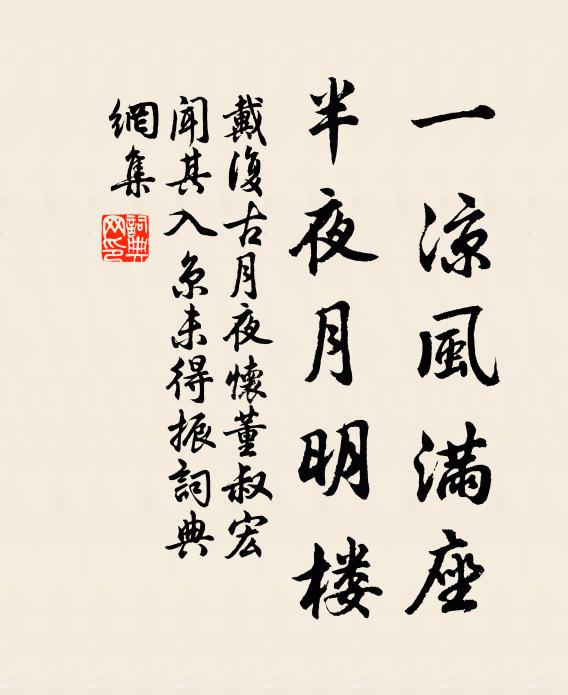 一涼風滿座
半夜月明楼
戴復古月夜懷董叔宏
聞其入京未得振詞典
網集
詞典網印